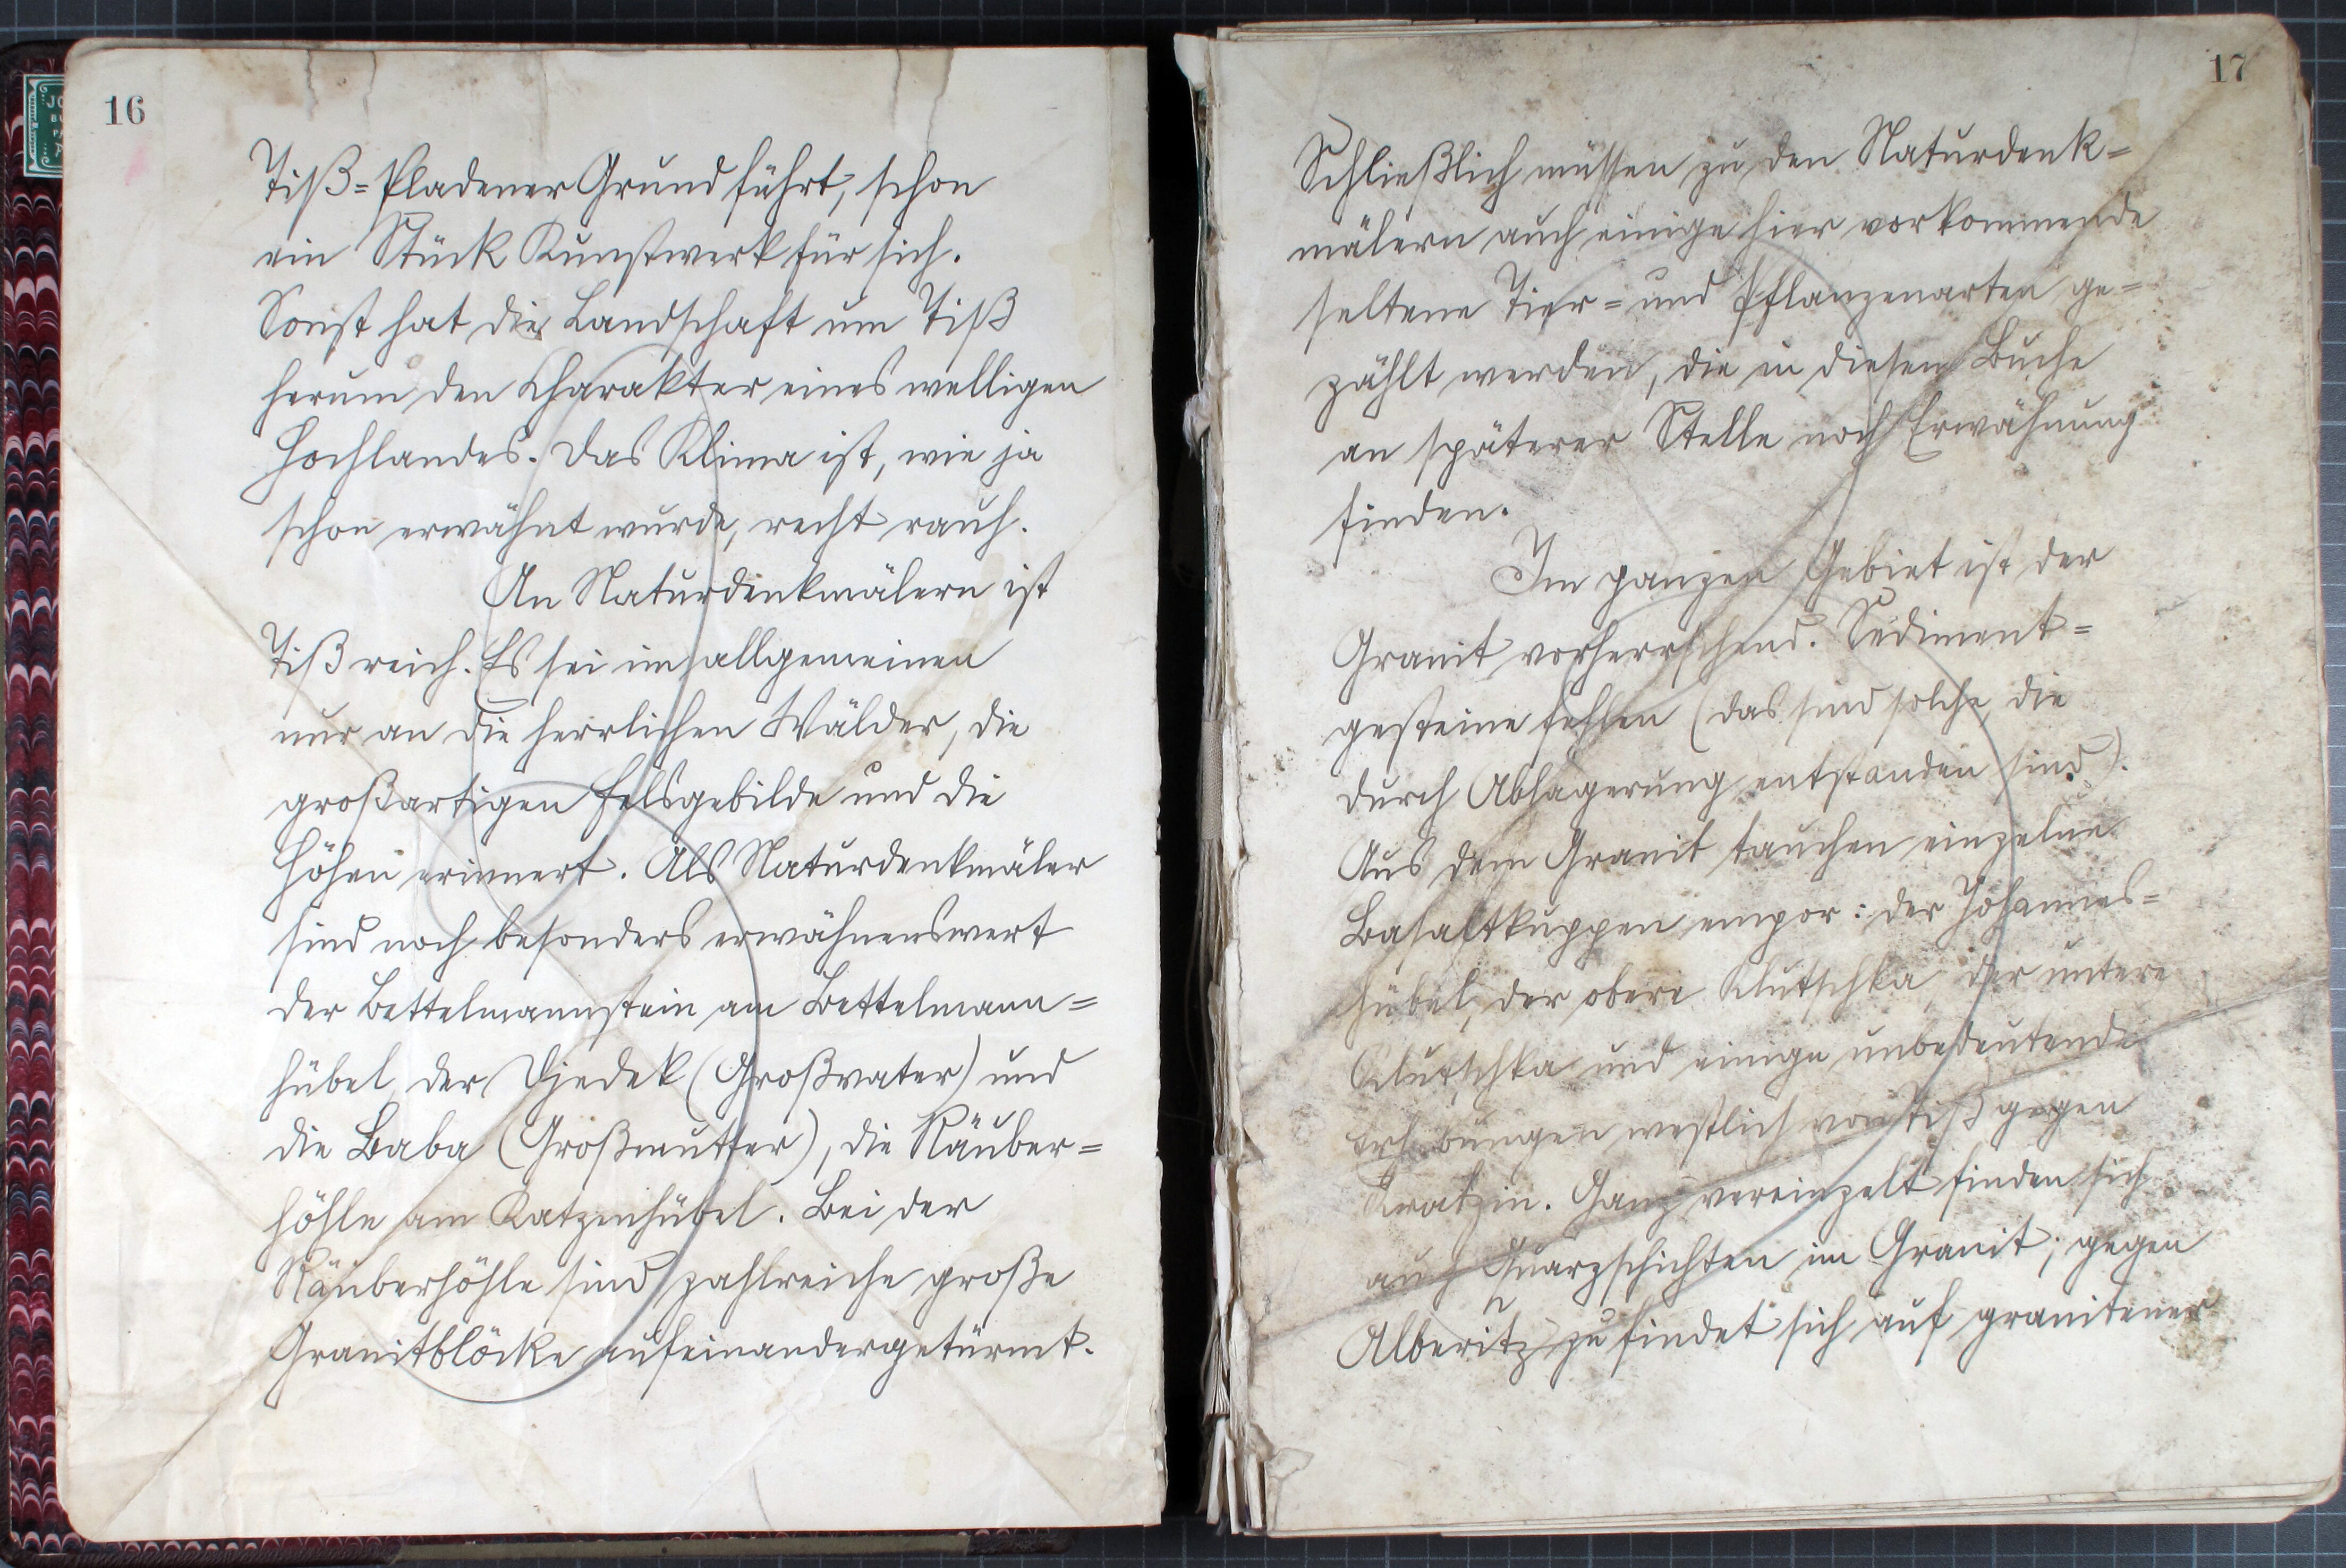 16
Tiß=Pladener Grund führt, schon
ein Stück Kunstwerk für sich.
Sonst hat die Landschaft um Tiß
herum den Charakter eines welligen
Hochlandes. Das Klima ist, wie ja
schon erwähnt wurde, recht rauh.
An Naturdenkmälern ist
Tiß reich. Es sei im allgemeinen
nur an die herrlichen Wälder, die
großartigen Felsgebilde und die
Höhen erinnert. Als Naturdenkmäler
sind noch besonders erwähnenswert
der Bettelmannstein am Bettelmann=
hübel, der Djedek (Großvater) und
die Baba (Großmutter), die Räuber=
höhle am Katzenhübel. Bei der
Räuberhöhle sind zahlreiche große
Granitblöcke aufeinandergetürmt.
17
Schließlich müssen zu den Naturdenk=
mälern auch einige hier vorkommende
seltene Tier= und Pflanzenarten ge=
zählt werden, die in diesem Buche
an späterer Stelle noch Erwähnung
finden.
Im ganzen Gebiet ist der
Granit vorherrschend. Sediment=
gesteine fehlen (das sind solche, die
durch Ablagerung entstanden sind).
Aus dem Granit tauchen einzelne
Basaltkuppen empor: der Johannes=
hübel, der obere Klutschka, der untere
Klutschka und einige unbedeutende
Erhebungen westlich von Tiß gegen
Kratzin. Ganz vereinzelt finden sich
auch Quarzschichten im Granit; gegen
Alberitz zu findet sich auf granitener